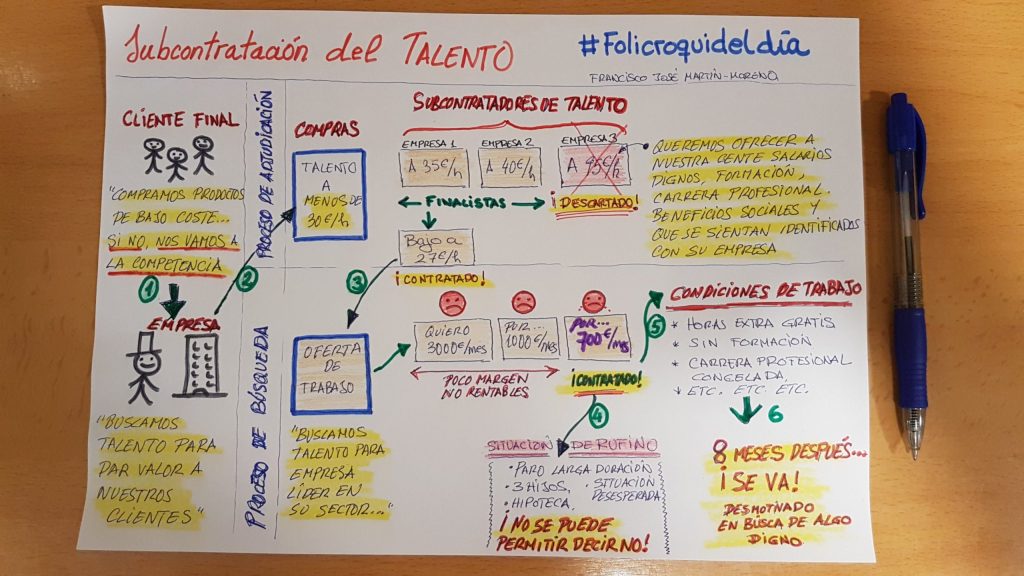 Subcontratación del TALENTO
#Folicroquideldía
FRANCISCO JOSÉ MARTÍN-MORENO
CLIENTE FINAL
"COMPRAMOS PRODUCTOS
DE BAJO COSTE...
SI NO, NOS VAMOS A
LA COMPETENCIA
1
EMPRESA
"BUSCAMOS
TALENTO PARA
DAR VALOR A
NUESTROS
CLIENTES"
PROCESO DE ADJUDICACIÓN
2
COMPRAS
TALENTO
A
MENOS DE
30€/h
SUBCONTRATADORES DE TALENTO
EMPRESA 1
A 35€/h
EMPRESA 2
A 40€/h
EMPRESA 3
A 45€/h
FINALISTAS
¡DESCARTADO!
QUEREMOS OFRECER A
NUESTRA GENTE SALARIOS
DIGNOS, FORMACIÓN,
CARRERA PROFESIONAL.
BENEFICIOS SOCIALES Y
QUE SE SIENTAN IDENTIFICADOS
CON SU EMPRESA
Bajo a
27€/h
¡CONTRATADO!
3
PROCESO DE BÚSQUEDA
OFERTA
DE
TRABAJO
"BUSCAMOS
TALENTO PARA
EMPRESA
LÍDER EN
SU SECTOR..."
QUIERO
3000€/mes
POR...
1000€/mes
POR...
700€/mes
POCO MARGEN
NO RENTABLES
¡CONTRATADO!
4
SITUACIÓN DE RUFINO
• PARO LARGA DURACIÓN
• 3 HIJOS. • SITUACIÓN
DESESPERADA
• HIPOTECA.
¡NO SE PUEDE
PERMITIR DECIR NO!
5
CONDICIONES DE TRABAJO
* HORAS EXTRA GRATIS
* SIN FORMACIÓN
* CARRERA PROFESIONAL
CONGELADA
* ETC. ETC. ETC.
6
8 MESES DESPUÉS...
¡SE VA!
DESMOTIVADO
EN BUSCA DE ALGO
DIGNO